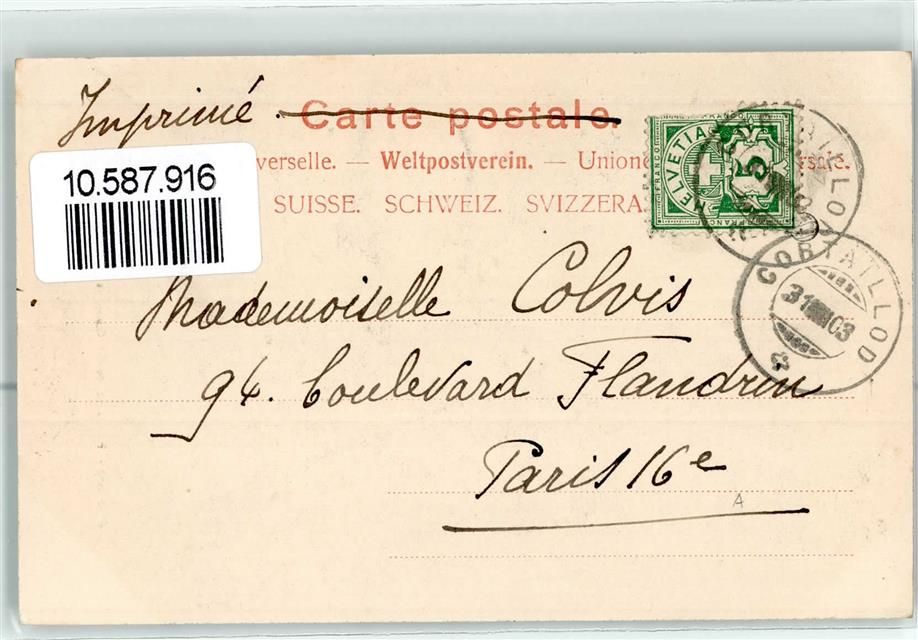 Imprimé. Carte postale.
verselle. — Weltpostverein. — Union
SUISSE. SCHWEIZ. SVIZZERA.
10.587.916
FRANCO HELVETIA 5 FRANCO
CORTAILLOD
31 VIII 03
Mademoiselle Colvis
94. boulevard Flandrin
Paris 16e
A